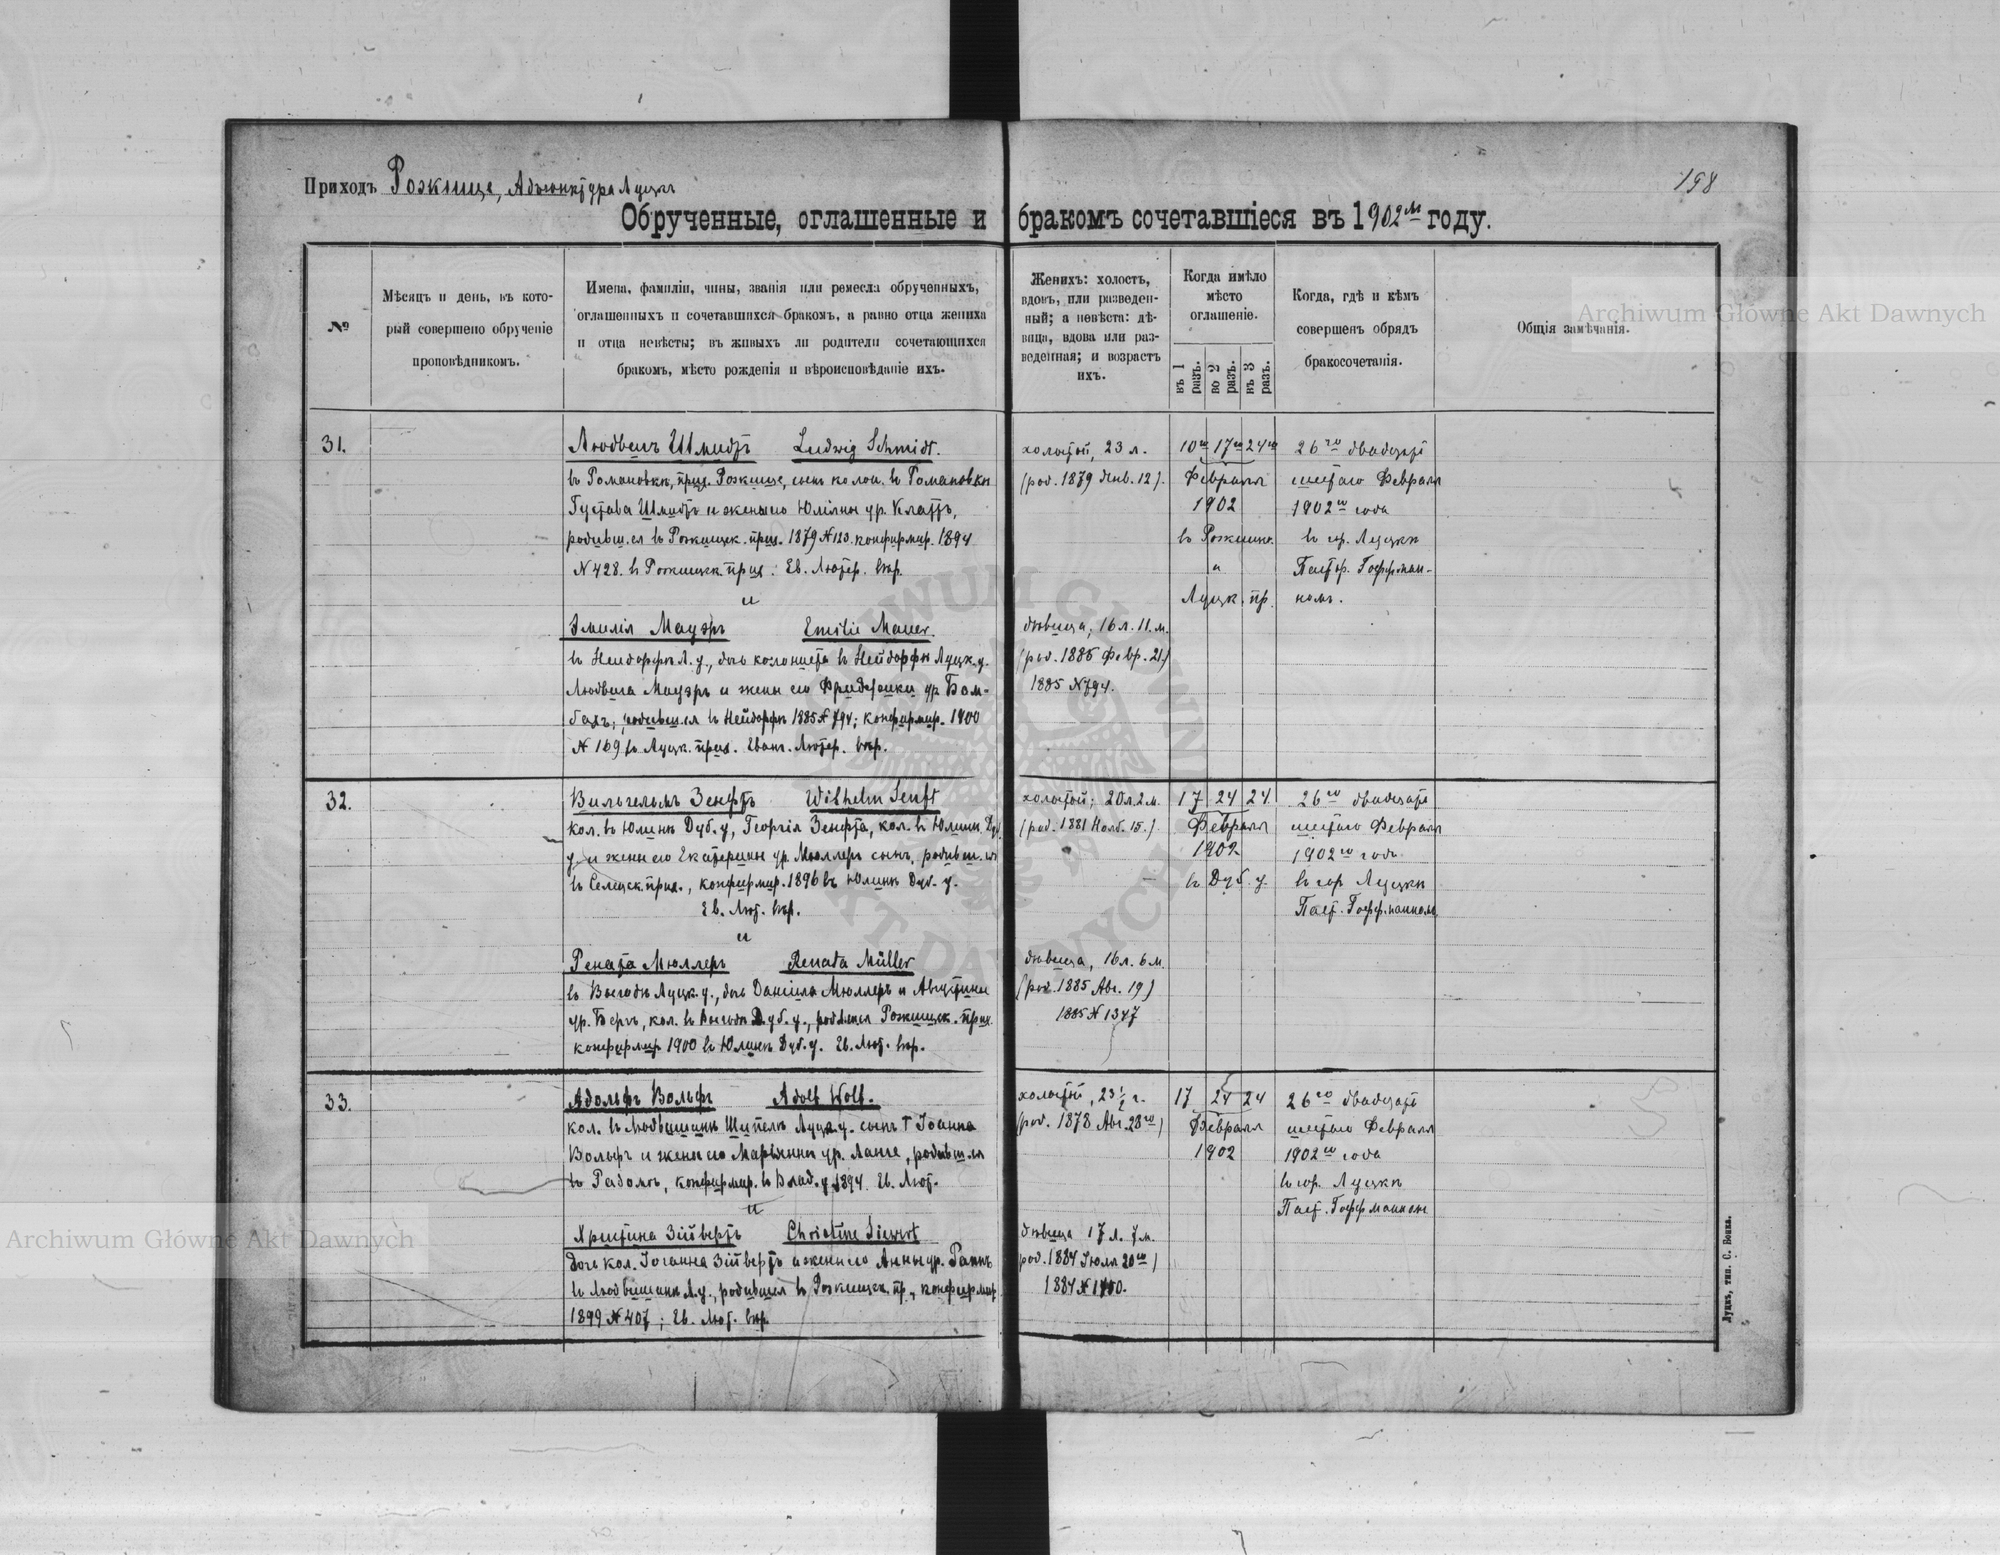 Приходъ Рожище, Адъюнктура Луцкъ
198
Обрученные, оглашенные и бракомъ сочетавшіеся въ 1902м году.
№
Мѣсяцъ и день, въ кото-
рый совершено обрученіе
проповѣдникомъ.
Имена, фамиліи, чины, званія или ремесла обрученныхъ,
оглашенныхъ и сочетавшихся бракомъ, а равно отца жениха
и отца невѣсты; въ живыхъ ли родители сочетающихся
бракомъ, мѣсто рожденія и вѣроисповѣданіе ихъ.
Женихъ: холостъ,
вдовъ, или разведен-
ный; а невѣста: дѣ-
вица, вдова или раз-
веденная; и возрастъ
ихъ.
Когда имѣло
мѣсто
оглашеніе.
въ 1 разъ.
во 2 разъ.
въ 3 разъ.
Когда, гдѣ и кѣмъ
совершенъ обрядъ
бракосочетанія.
Общія замѣчанія.
31.
Людвигъ Шмидтъ Ludwig Schmidt.
въ Романовкѣ, прих. Рожище, сынъ колон. въ Романовкѣ
Густава Шмидтъ и жены его Юліяны ур. Клаттъ,
родивш.ся въ Рожищск. прих. 1879 N 123. конфирмир. 1894
N 428. въ Рожищск. прих. Ев. Лютер. вѣр.
и
Эмилія Мауэръ Emilie Mauer.
въ Нейдорфѣ Л. у., дочь колониста въ Нейдорфѣ Луцк. у.
Людвига Мауэръ и жены его Фридерики ур. Бом-
бахъ; родивш.ся въ Нейдорфѣ 1885 N 794; конфирмир. 1900
N 169 въ Луцк. прих. Еванг. Лютер. вѣр.
холостой, 23 л.
(род. 1879 Янв. 12).
дѣвица, 16 л. 11. м.
(род. 1885 Февр. 21.)
1885 N 794.
10го 17го 24го
Февраля
1902
въ Рожищѣ
и
Луцк. пр.
26го двадцать
шестаго Февраля
1902го года
въ гор. Луцкѣ
Пастор. Гоффман-
номъ.
32.
Вильгельмъ Зенфтъ Wilhelm Senft
кол. въ Юлинѣ Дуб. у, Георгія Зенфта, кол. въ Юлинѣ Дуб.
у. и жены его Екатерины ур. Мюллеръ сынъ, родивш.ся
въ Селецск. прих., конфирмир. 1896 въ Юлинѣ Дуб. у.
Ев. Лют. вѣр.
и
Рената Мюллеръ Renata Müller
въ Выгодѣ Луцк. у., дочь Даніила Мюллеръ и Августины
ур. Бергъ, кол. въ Выгодѣ Дуб. у., родилася Рожищск. прих.
конфирмир 1900 въ Юлинѣ Дуб. у. Ев. Лют. вѣр.
холостой; 20 л. 2 м.
(род. 1881 Нояб. 15.)
дѣвица, 16 л. 6 м.
(род. 1885 Авг. 19)
1885 N 1347
17 24 24
Февраля
1902
въ Дуб. у.
26го двадцать
шестаго Февраля
1902го года
въ гор. Луцкѣ
Паст. Гоффманномъ
33.
Адольфъ Вольфъ Adolf Wolf.
кол. въ Людвишинѣ Шипелѣ Луцк. у. сынъ † Іоанна
Вольфъ и жены его Марьянны ур. Ланге, родивш.ся
въ Радомѣ, конфирмир. въ Влад. у. 1894. Ев. Лют.
и
Христина Зівертъ Christine Siewert
дочь кол. Іоганна Зівертъ и жены его Анны ур. Раннъ
въ Людвишинѣ Л. у., родившся въ Рожищск. пр., конфирмир
1899 N 407; Ев. Лют. вѣр.
холостой, 23 1/2 г.
(род. 1878 Авг. 28го)
дѣвица 17 л. 7 м.
род. 1884 Іюля 20го)
1884 N 1100.
17 24 24
Февраля
1902
26го двадцать
шестаго Февраля
1902го года
въ гор. Луцкѣ
Паст. Гоффманномъ
Луцкъ, тип. С. Бонка.
Archiwum Główne Akt Dawnych
Archiwum Główne Akt Dawnych
ARCHIWUM GŁÓWNE AKT DAWNYCH